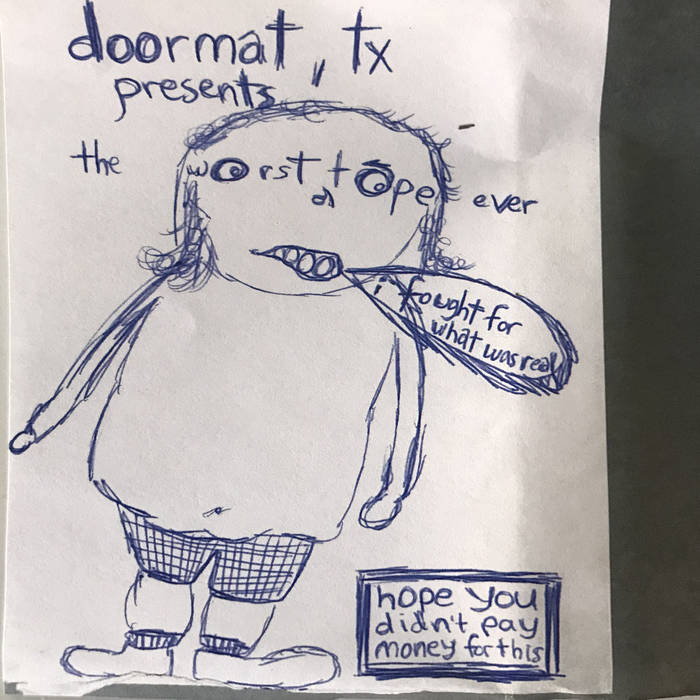 doormat, tx
presents
the worst tape ever
i fought for
what was real
hope you
didn't pay
money for this